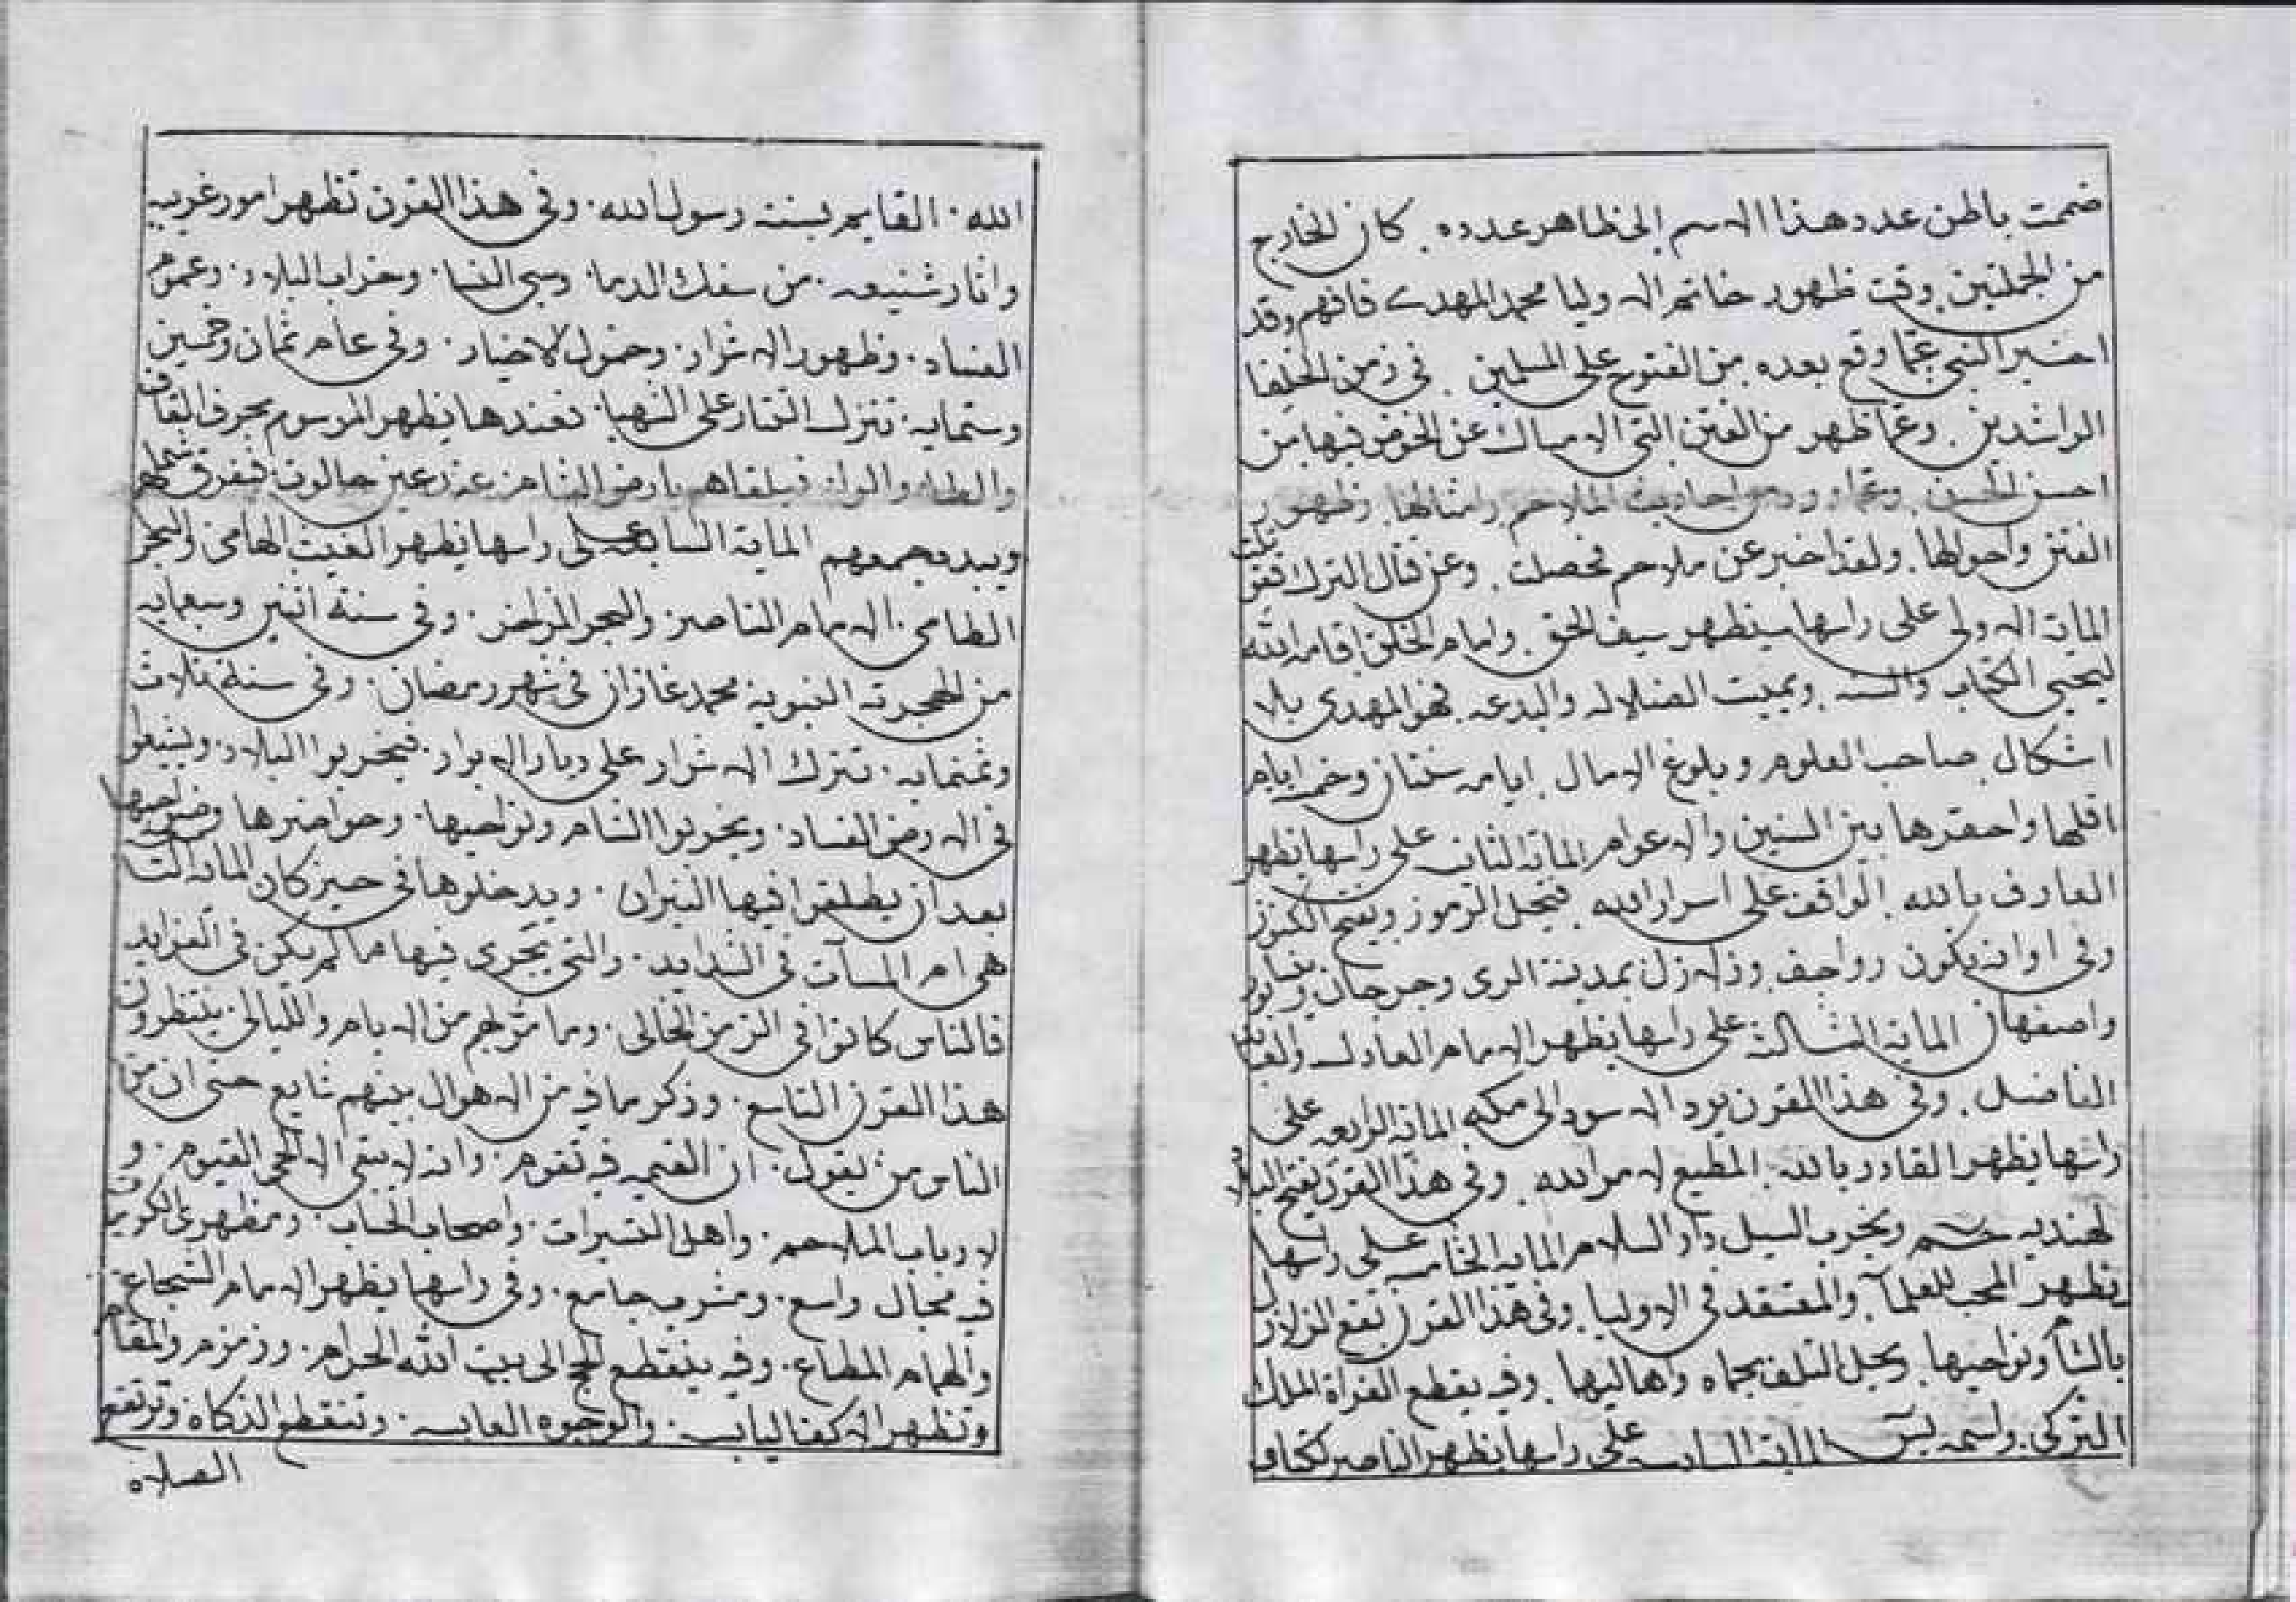 ضممت باطن عدد هذا الاسم إلى ظاهر عدده. كان الخارج
من الجملتين وقت ظهور خاتم الاوليا محمد المهدى فافهم وقد
اخبر النبي عما وقع بعده من الفتوح على المسلمين في زمن الخلفا
الراشدين. وعما ظهر من الفتن التي الامساك عن الخوض فيها من
احسن الحسن وعما ورد من احاديث الملاحم وامثالها وظهور
الفتن واحوالها. ولقد اخبر عن ملاحم فحصلت. وعن قتال الترك
المائة الاولى على راسها سيظهر سيف الحق. وامام الخلق اقامه الله
ليحيى الكتاب والسنه. ويميت الضلاله والبدعه. فهو المهدى بلا
اشكال صاحب العلوم وبلوغ الامال. ايامه سنتان وخمس ايام
اقلها واحقرها بين السنين والاعوام المائة الثانيه على راسها يظهر
العارف بالله الواقف على اسرار الله. فيحل الرموز ويفتح الكنوز
وفي اوانه يكون رواجف وزلازل بمدينة الرى وجرجان
واصفهان المائة الثالثة على راسها يظهر الامام العادل
الفاضل. وفي هذا القرن يرد الاسود الى مكه المائة الرابعه على
راسها يظهر القادر بالله المطيع لامر الله. وفي هذا القرن يفتح البلاد
الهنديه ويخرب السيل دار السلام المائة الخامسه على راسها
يظهر المحب للعلمآ والمعتقد في الاوليا. وفي هذا القرن تقع الزلازل
بالشام ونواحيها. ويحل التلف بحماه واهاليها. وفيه يقطع الفراة الملك
التركى. واسمه المائة السادسه على راسها يظهر الناصر لكتاب
الله. القايم بسنة رسول الله. وفي هذا القرن تظهر امور غريبه
واثار شنيعه. من سفك الدما. وسبى النسا. وخراب البلاد. وعموم
الفساد. وظهور الاشرار. وخمول الاخيار. وفي عام ثمان وخمسين
وستمايه. تنزل التتار على الشهبا. فعندها يظهر الموسوم بحرف القاف
والطاء والواو فيلقاهم بارض الشام عند عين جالوت فيفرق شملهم
ويبدد جمعهم المائة السابعه على راسها يظهر الغيث الهامى والبحر
الطامى. الامام الناصر. والبحر الزاخر. وفي سنة اثنين وسبعمايه
من الهجرة النبوية محمد غازان في شهر رمضان. وفي سنة ثلاث
وثمنمايه. تنزل الاشرار على ديار الابرار. فيخربوا البلاد. ويسعوا
في الارض الفساد. ويخربوا الشام ونواحيها. وحواضرها وضواحيها
بعد ان يطلقوا فيها النيران. ويدخلوها في حيز كان المائة
هي ام المـآت في الشدايد. والتي تجرى فيها ما لم يكن في العوايد
فالناس كانوا في الزمن الخالى. وما مر لهم من الايام والليالى ينتظرون
هذا القرن التاسع. وذكر ما فيه من الاهوال بينهم شايع حتى ان من
الناس من يقول. ان القيمه فيه تقوم. وانه لا يبقى الا الحى القيوم. و
لارباب الملاحم. واهل التسيرات. واصحاب الحساب.
فيه مجال واسع. ومشرب جامع. وفي راسها يظهر الامام الشجاع
والهمام المطاع. وفيه ينقطع الحج الى بيت الله الحرام. وزمزم والمقام
وتظهر الاكف اليابسه. والوجوه العابسه. وتنقطع الذكاة وترتفع
الصلاه